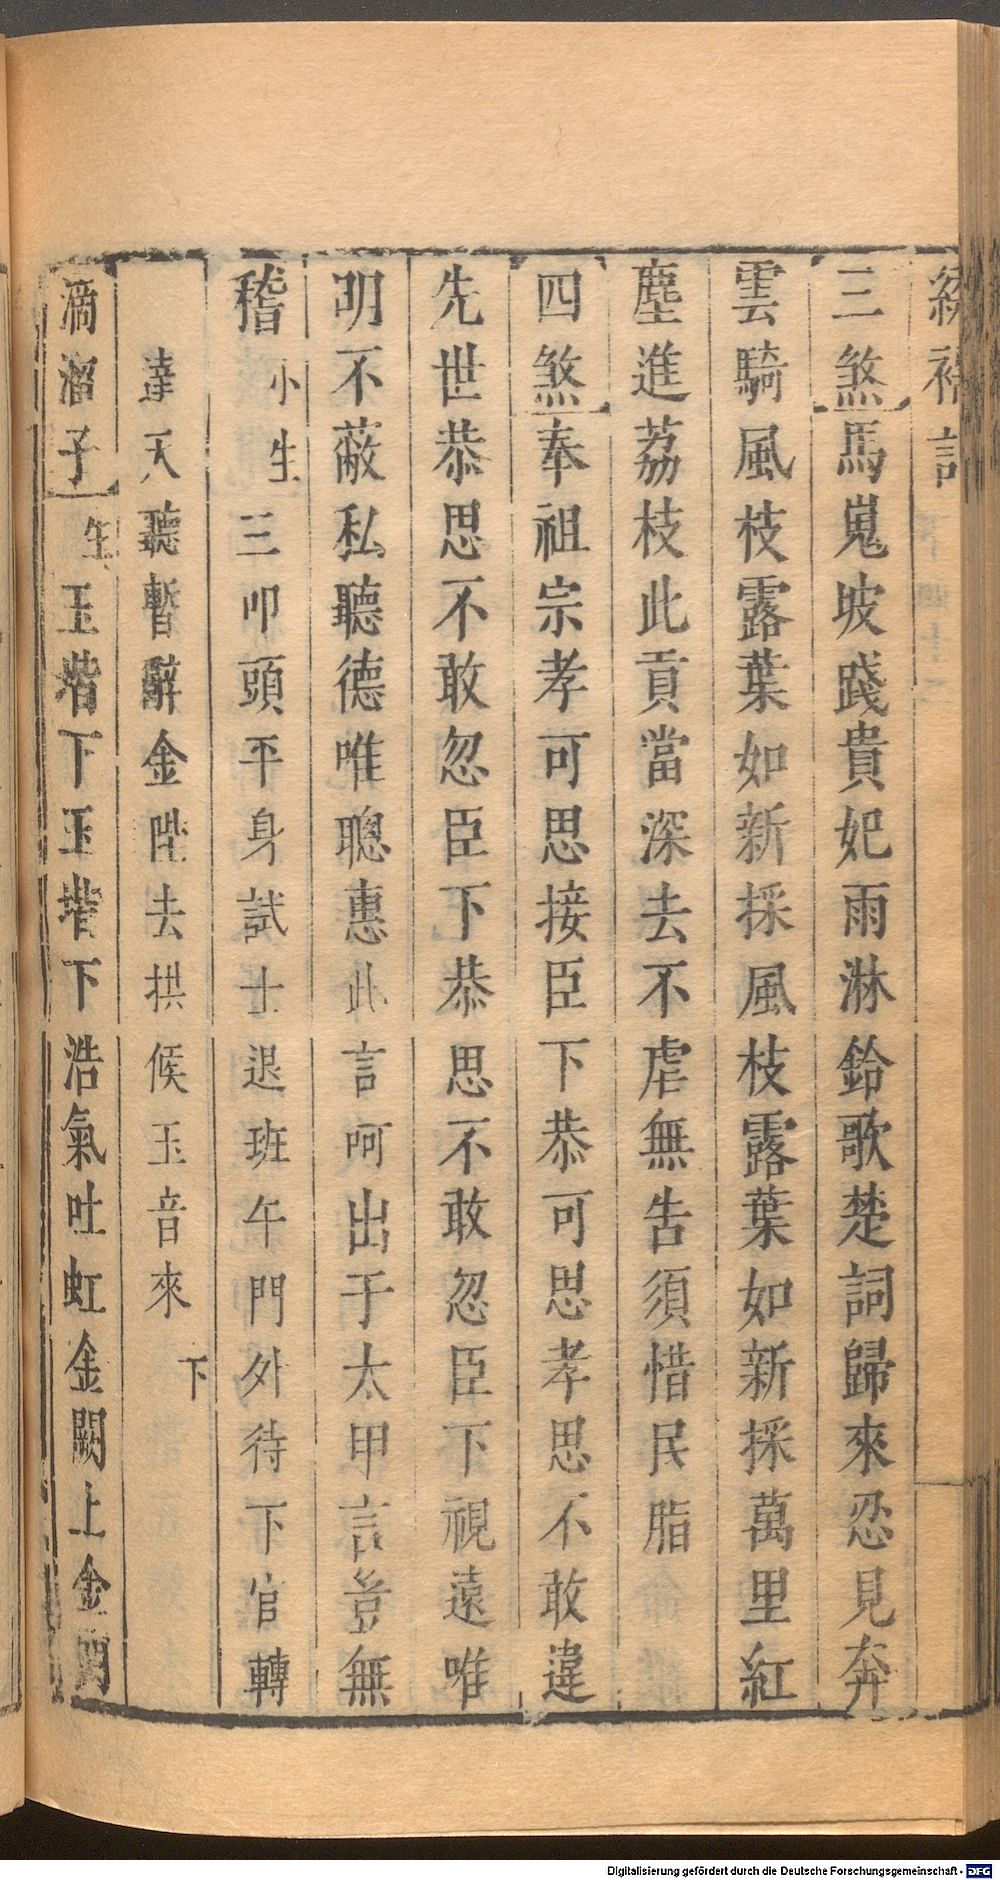 記
三煞馬嵬坡踐貴妃雨淋鈴歌楚詞歸來忍見奔
雲騎風枝露葉如新採風枝露葉如新採萬里紅
塵進荔枝此貢當深去不虐無告須惜民脂
四煞奉祖宗孝可思接臣下恭可思孝思不敢違
先世恭思不敢忽臣下恭思不敢忽臣下視遠唯
明不蔽私聽德唯聰惠此言呵出于太甲言豈無
稽小生三叩頭平身試士退班午門外待下官轉
達天聽暫辭金陛去拱候玉音來下
滴溜子生玉堦下玉堦下浩氣吐虹金闕上金闕
Digitalisierung gefördert durch die Deutsche Forschungsgemeinschaft - DFG